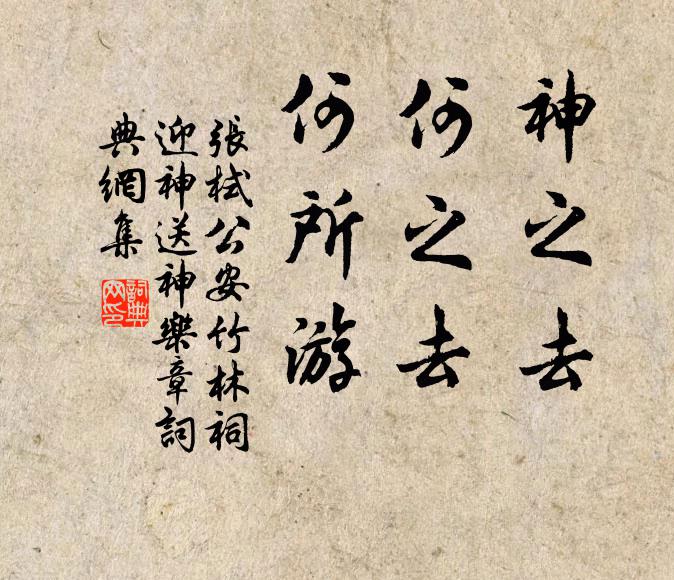 神之去
何之去
何所游
張栻公安竹林祠
迎神送神樂章詞
典網集
詞典
网印